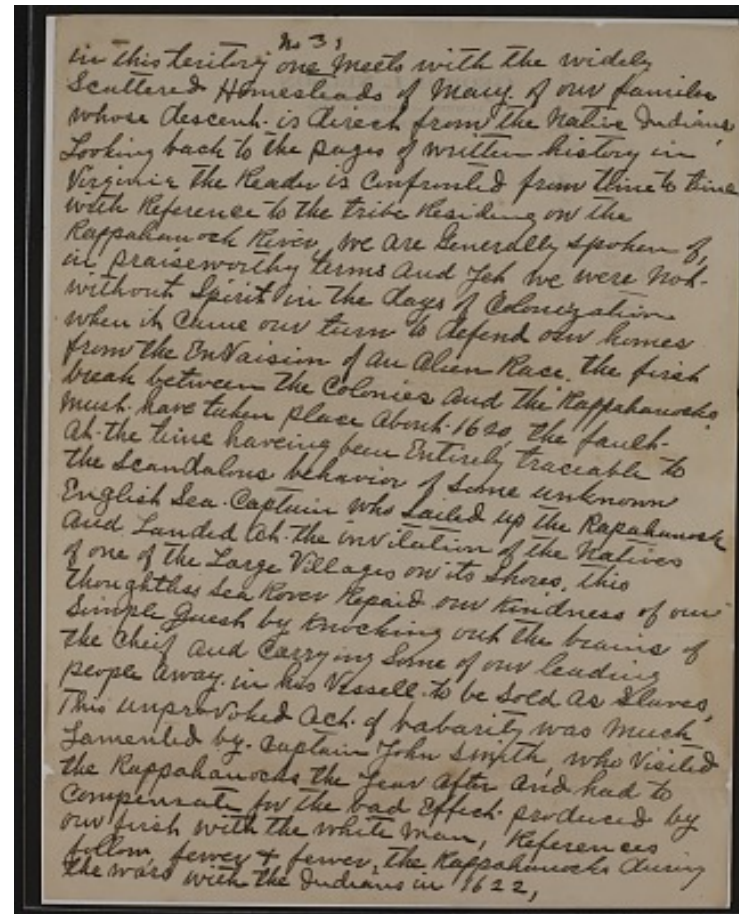 No 3,
in this teritory one meets with the widely
Scattered Homesteads of Many of our families
whose descent is direct from the Native Indians
Looking back to the pages of written history in
Virginia the Reader is Confronted from time to time
with Reference to the tribe Residing on the
Rappahanock River, we are Generally spoken of,
in praiseworthy terms And Yet we were not
without Spirit in the days of Colonization
when it Came our turn to defend our homes
from the Envaision of an Alien Race. the first
break between the Colonies And the Rappahanocks
must have taken place About 1620, the fault
At the time haveing been Entirely traceable to
the Scandalous behavior of Some unknown
English Sea Captain who Sailed up the Rapahanock
And Landed At the invitation of the Natives
of one of the Large Villages on its Shores, this
thoughtless Sea Rover Repaid our Kindness of our
Simple Guest by Knocking out the brains of
the Cheif And Carrying Some of our leading
people Away in his Vessell to be Sold As Slaves,
This unprovoked Act of babarity was Much
Lamented by Captain John Smyth, who Visited
the Rappahanocks the Year After And had to
Compensate for the bad Effect produced by
our first with the white Man, References
follow, fewer & fewer, the Rappahanocks during
the wars with the Indians in 1622,